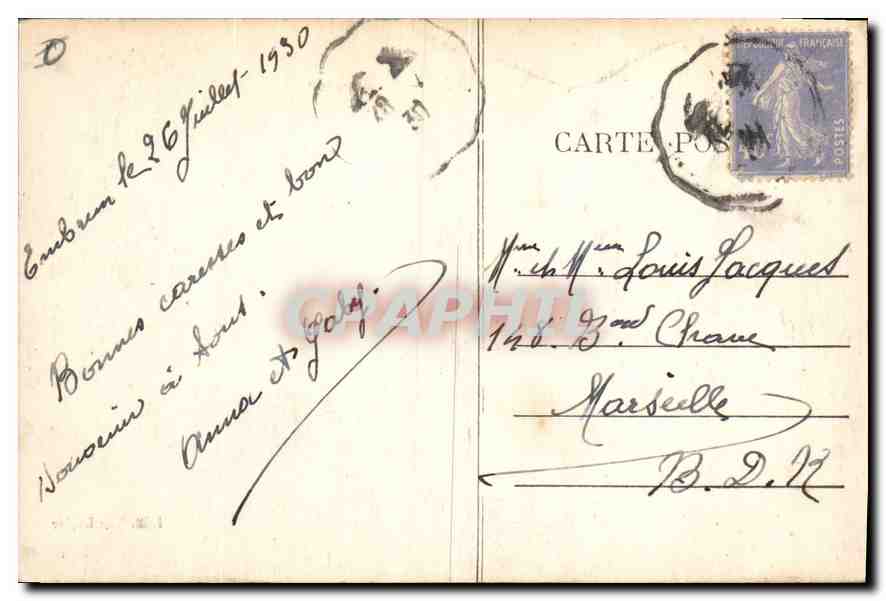 Embrun le 26 Juillet 1930
Bonnes caresses et bon
souvenir à tous.
Anna et Gaby.
CARTE POS
RÉPUBLIQUE FRANÇAISE
POSTES
Mme et Mieur Louis Jacques
148. Bard Chave
Marseille
B. D. R
CPAPHIL